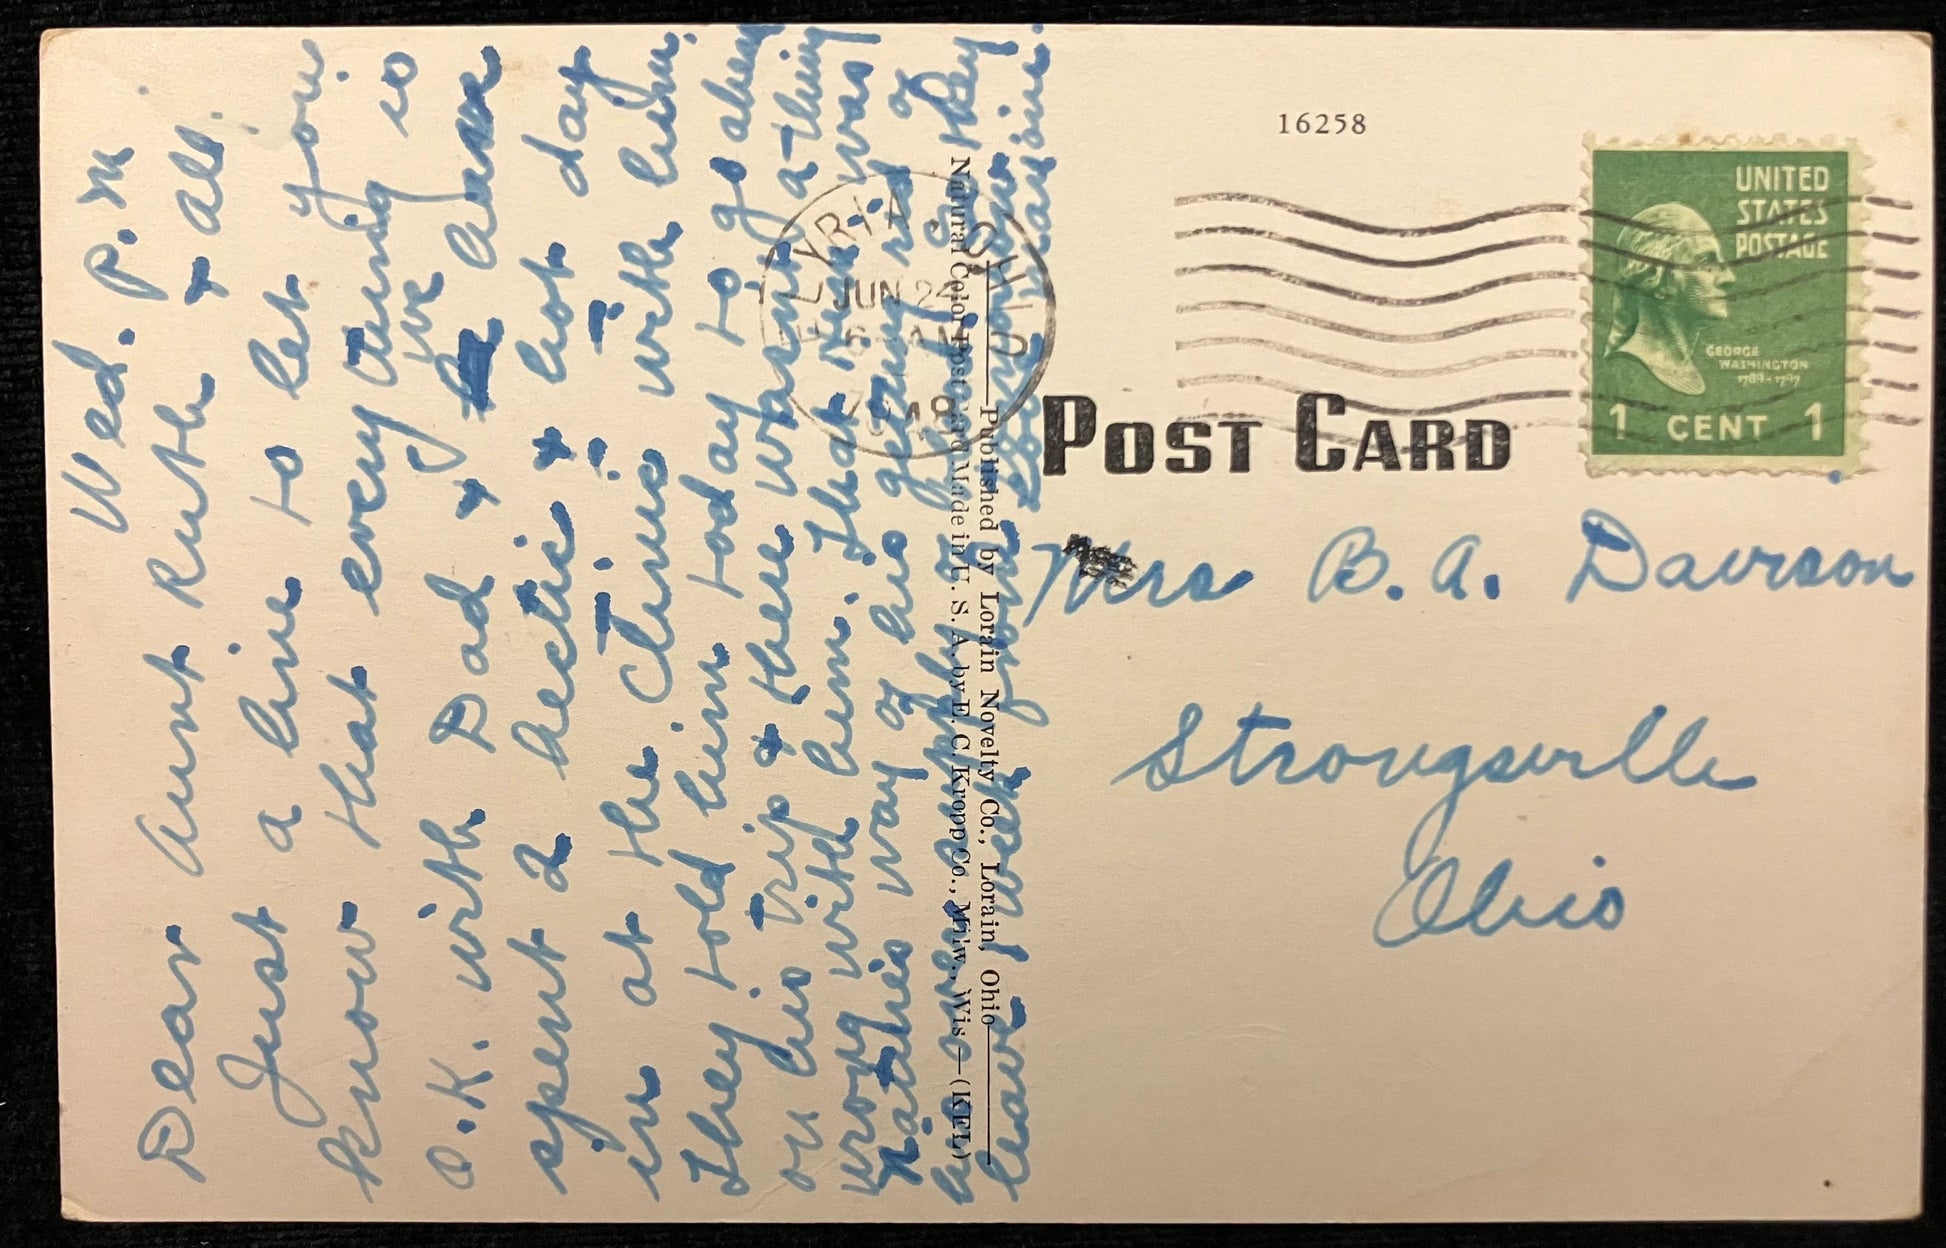 Wed. P.M.
Dear Aunt Ruth & all.
Just a line to let you
know that every thing is
O.K. with Dad & we have
spent a hectic & hot day
in at the Clinic with him.
They told him today to go ahead
on his trip & there wasnt a thing
wrong with him. That
natures way of his getting rid of
his over supply of
leave, week from
Louraine.
16258
UNITED
STATES
POSTAGE
GEORGE
WASHINGTON
1789-1797
1 CENT 1
ELYRIA OHIO
JUN 24
6 AM
1948
POST CARD
Published by Lorain Novelty Co., Lorain, Ohio
Natural Color Post Card Made in U. S. A. by E. C. Kropp Co., Milw., Wis.—(KEL)
Mrs B. A. Davison
Strongsville
Ohio